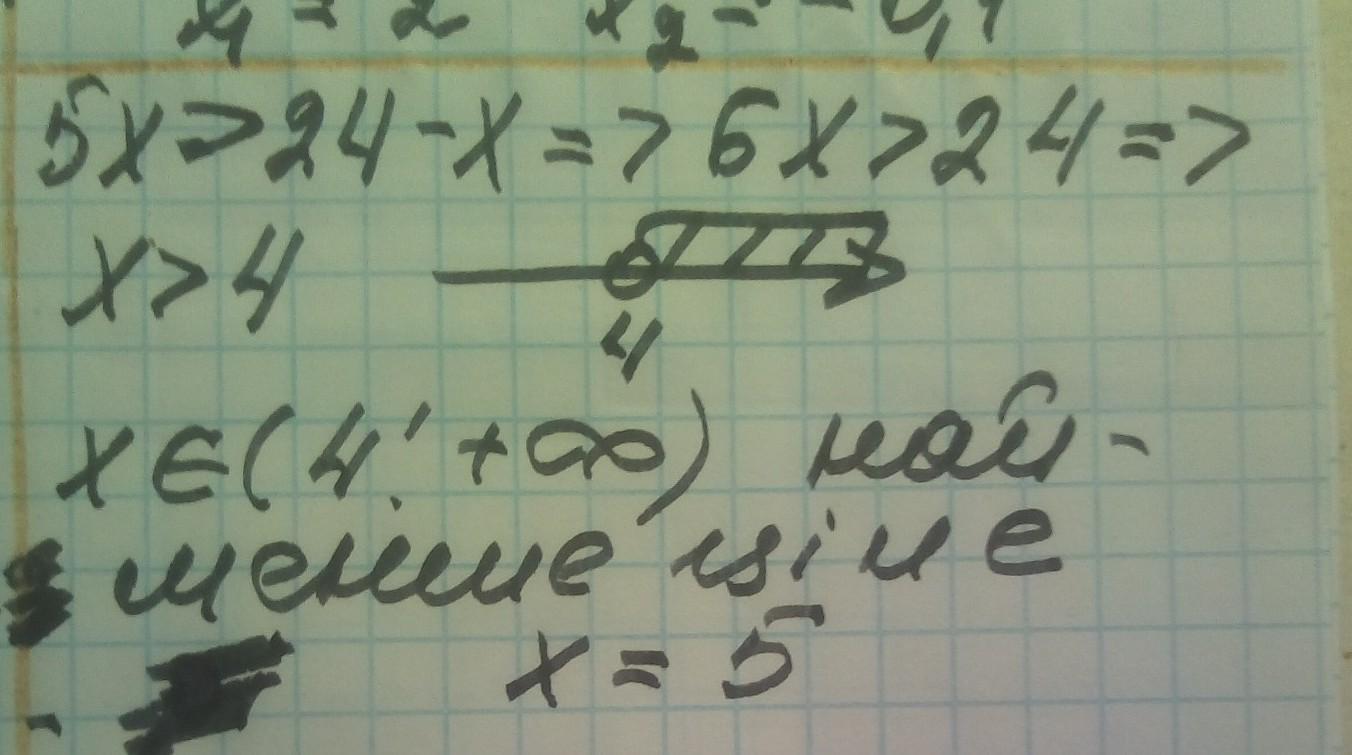 x₁ = 2 x₂ = -0,1
5x > 24 - x => 6x > 24 =>
x > 4
4
x ∈ (4; +∞) най-
менше ціле
x = 5